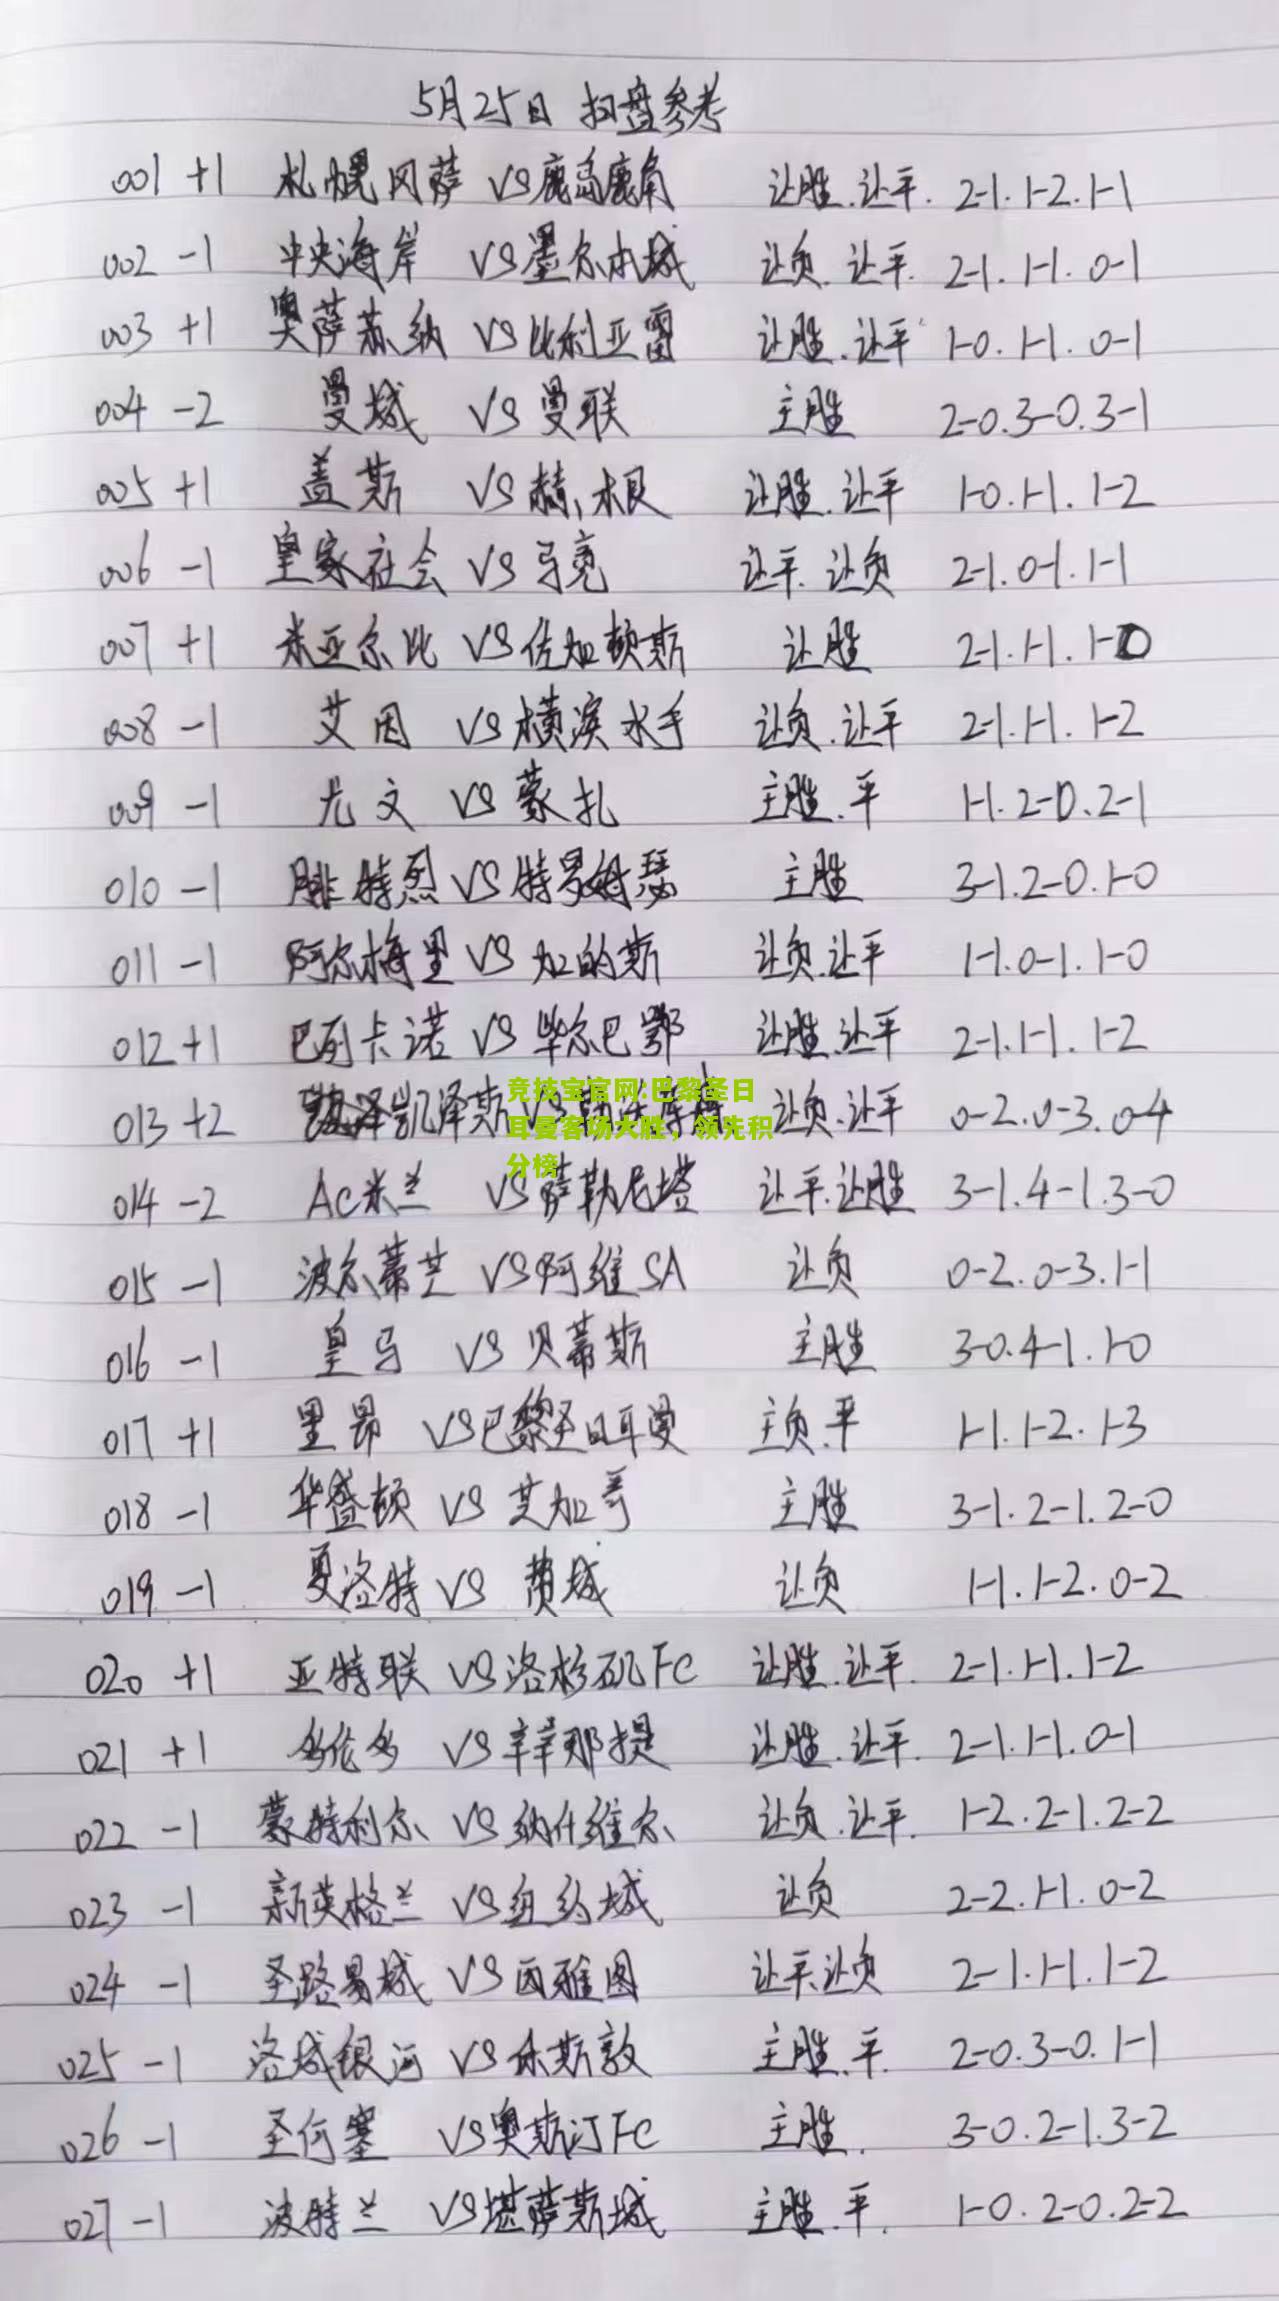 5月25日 扫盘参考
001 +1 札幌冈萨 VS鹿岛鹿角 让胜.让平. 2-1. 1-2. 1-1
002 -1 中央海岸 VS墨尔本城 让负. 让平. 2-1. 1-1. 0-1
003 +1 奥萨苏纳 VS比利亚雷 让胜.让平 1-0. 1-1. 0-1
004 -2 曼城 VS曼联 主胜 2-0. 3-0. 3-1
005 +1 盖斯 VS赫根 让胜.让平 1-0. 1-1. 1-2
006 -1 皇家社会 VS马竞 让平. 让负 2-1. 0-1. 1-1
007 +1 米亚尔比 VS佐加顿斯 让胜 2-1. 1-1. 1-0
008 -1 艾因 VS横滨水手 让负.让平 2-1. 1-1. 1-2
009 -1 尤文 VS蒙扎 主胜.平 1-1. 2-0. 2-1
010 -1 腓特烈VS特罗姆瑟 主胜 3-1. 2-0. 1-0
011 -1 阿尔梅里VS加的斯 让负.让平 1-1. 0-1. 1-0
012 +1 巴列卡诺 VS毕尔巴鄂 让胜.让平 2-1. 1-1. 1-2
竞技宝官网:巴黎圣日
013 +2 凯泽斯VS 让负.让平 0-2. 0-3. 0-4
耳曼客场大胜，领先积
分榜
014 -2 AC米兰 VS萨勒尼塔 让平.让胜 3-1. 4-1. 3-0
015 -1 波尔蒂芒 VS阿维SA 让负 0-2. 0-3. 1-1
016 -1 皇马 VS贝蒂斯 主胜 3-0. 4-1. 1-0
017 +1 里昂 VS巴黎圣日耳曼 主负.平 1-1. 1-2. 1-3
018 -1 华盛顿 VS芝加哥 主胜 3-1. 2-1. 2-0
019 -1 夏洛特VS 费城 让负 1-1. 1-2. 0-2
020 +1 亚特联 VS洛杉矶FC 让胜.让平. 2-1. 1-1. 1-2
021 +1 多伦多 VS辛辛那提 让胜.让平. 2-1. 1-1. 0-1
022 -1 蒙特利尔 VS纳什维尔 让负.让平. 1-2. 2-1. 2-2
023 -1 新英格兰 VS纽约城 让负 2-2. 1-1. 0-2
024 -1 圣路易城 VS西雅图 让平.让负 2-1. 1-1. 1-2
025 -1 洛城银河 VS休斯敦 主胜.平. 2-0. 3-0. 1-1
026 -1 圣何塞 VS奥斯汀FC 主胜. 3-0. 2-1. 3-2
027 -1 波特兰 VS堪萨斯城 主胜.平. 1-0. 2-0. 2-2